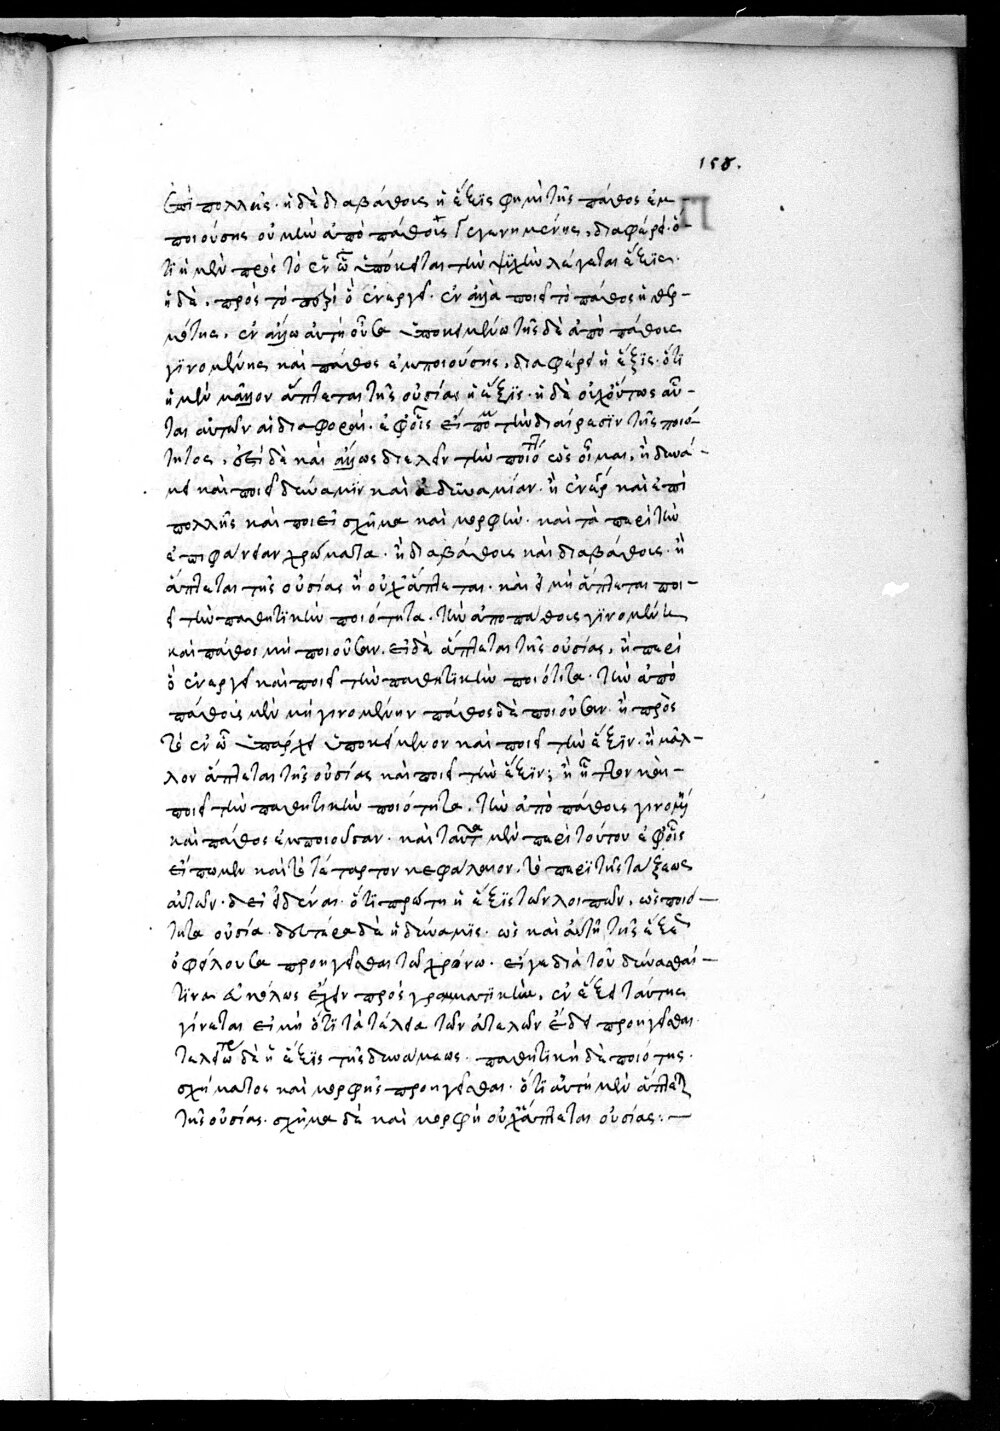 158.
ἐπιπολλῆς· ἡ δὲ διαβάθους ἡ ἕξις φημὶ τῆς πάθος ἐμ
ποιούσης οὐ μὴν ἀπὸ πάθους γεγενημένης, διαφέρει· ὅ-
τι ἡ μὲν πρὸς τὸ ἐν ὧ ὑπόκειται τὴν ψυχὴν λέγεται ἕξις·
ἡ δὲ, πρὸς τὸ περὶ ὃ ἐνεργεῖ· ἐν ἄλλα ποιεῖ τὸ πάθος ἡ θερ-
μότης, ἐν ἄλλω αὐτὴ οὖσα ὑποκειμένω τῆς δὲ ἀπὸ πάθους
γινομένης καὶ πάθος ἐμποιούσης, διαφέρει ἡ ἕξις· ὅτι
ἡ μὲν μᾶλλον ἅπτεται τῆς οὐσίας ἡ ἕξις· ἡ δὲ οὐχ οὕτως αὗ-
ται αὐτῶν αἱ διαφοραί· ἐφ οἷς εἴπομεν τὴν διαίρεσιν τῆς ποιό-
τητος, ἐπεὶ δὲ καὶ ἄλλως διελεῖν τὴν ποιότητα ὡς οἶμαι, ἢ δυνά-
μει καὶ ποιεῖ δύναμιν καὶ ἀδυναμίαν· ἢ ἐνεργεία καὶ ἐπι
πολλῆς καὶ ποιεῖ σχῆμα καὶ μορφὴν· καὶ τὰ περὶ τὴν
ἐπιφάνειαν χρώματα· ἢ διαβάθους καὶ διαβάθους· ἢ
ἅπτεται τῆς οὐσίας ἢ οὐχ ἅπτεται· καὶ εἰ μὴ ἅπτεται ποι-
εῖ τὴν παθητικὴν ποιότητα· τὴν ἀπο πάθους γινομένην
καὶ πάθος μὴ ποιοῦσαν· εἰ δὲ ἅπτεται τῆς οὐσίας, ἢ περὶ
ὃ ἐνεργεῖ καὶ ποιεῖ τὴν παθητικὴν ποιότητα· τὴν ἀπὸ
πάθους μὲν μὴ γινομένην πάθος δὲ ποιοῦσαν· ἢ πρὸς
τὸ ἐν ὧ ὑπάρχει ὑποκείμενον καὶ ποιεῖ τὴν ἕξιν· ἢ μᾶλ-
λον ἅπτεται τῆς οὐσίας καὶ ποιεῖ τὴν ἕξιν; ἢ ἧττον καὶ
ποιεῖ τὴν παθητικὴν ποιότητα· τὴν ἀπὸ πάθους γινομένην
καὶ πάθος ἐμποιοῦσαν· καὶ ταῦτα μὲν περὶ τούτου ἐφ οἷς
εἴπωμεν καὶ τὸ τέταρτον κεφάλαιον· τὸ περὶ τῆς τάξεως
αὐτῶν· δεῖ εἰδέναι ὅτι πρώτη ἡ ἕξις τῶν λοιπῶν, ὡς ποιό-
τητα οὐσία· δευτέρα δὲ ἡ δύναμις· ὡς καὶ αὐτὴ τῆς ἕξεως
ὀφείλουσα προηγεῖσθαι τῶ χρόνω· εἴγε διὰ τοῦ δύνασθαί
τινα εὐκόλως ἔχειν πρὸς γραμματικὴν, ἐν ἕξει ταύτης
γίνεται εἰ μὴ ὅτι τὰ τέλεια τῶν ἀτελῶν ἔδει προηγεῖσθαι·
τελειωτέρα δὲ ἡ ἕξις τῆς δυνάμεως· παθητικὴ δὲ ποιότης·
σχήματος καὶ μορφῆς προηγεῖσθαι· ὅτι αὐτὴ μὲν ἅπτεται
τῆς οὐσίας· σχῆμα δὲ καὶ μορφὴ οὐχ ἅπτεται οὐσίας:—